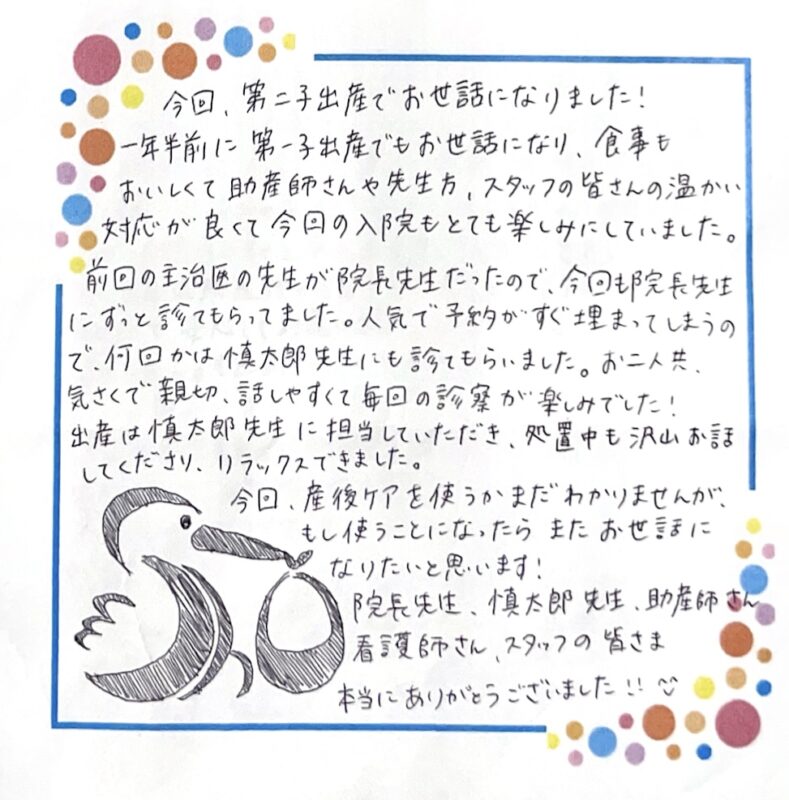 今回、第二子出産でお世話になりました！
一年半前に第一子出産でもお世話になり、食事も
おいしくて助産師さんや先生方、スタッフの皆さんの温かい
対応が良くて今回の入院もとても楽しみにしていました。
前回の主治医の先生が院長先生だったので、今回も院長先生
にずっと診てもらってました。人気で予約がすぐ埋まってしまうの
で、何回かは慎太郎先生にも診てもらいました。お二人共、
気さくで親切、話しやすくて毎回の診察が楽しみでした！
出産は慎太郎先生に担当していただき、処置中も沢山お話
してくださり、リラックスできました。
今回、産後ケアを使うかまだわかりませんが、
もし使うことになったらまたお世話に
なりたいと思います！
院長先生、慎太郎先生、助産師さん
看護師さん、スタッフの皆さま
本当にありがとうございました！！